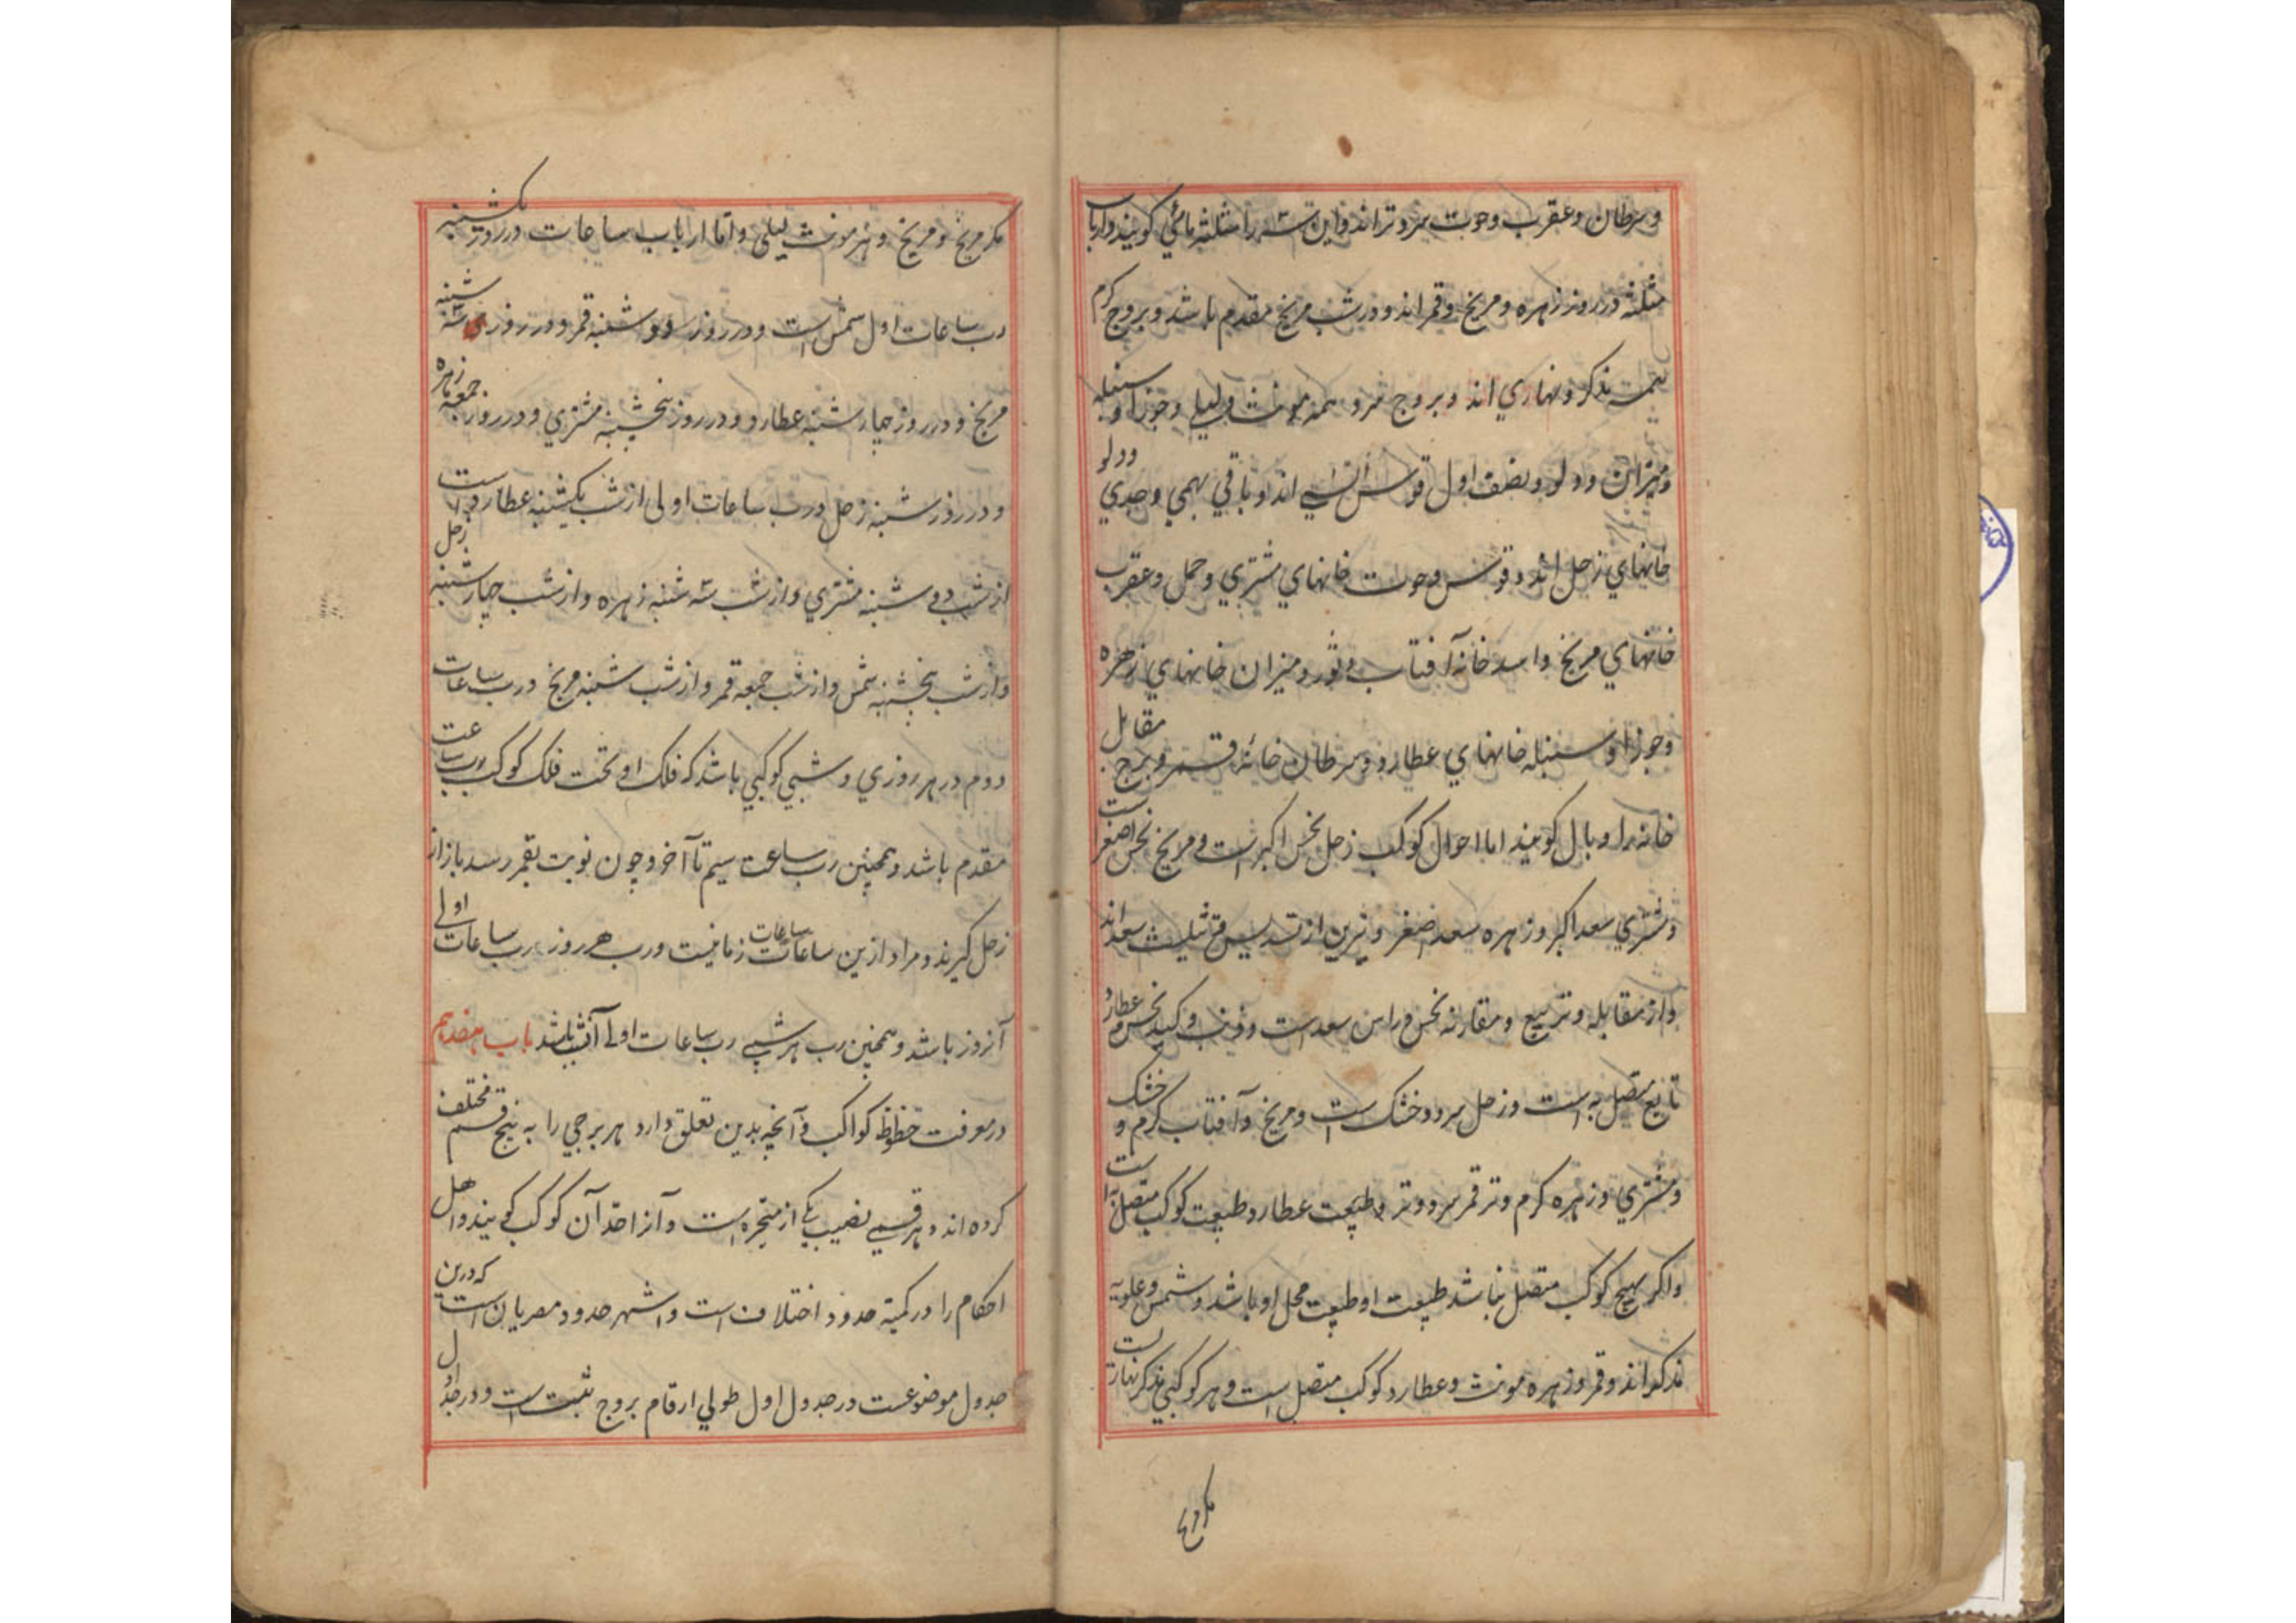 وسرطان وعقرب وحوت سرد وتراند واین سه را مثلثه مائی کویند وارباب
مثلثه در روز زهره ومریخ وقمر اند ودر شب مریخ مقدم باشد وبروج کرم
همه مذکر ونهاری اند وبروج سرد همه مونث ولیلی وجوزا وسنبله
ومیزان ودلو ونصف اول قوس انسی اند وباقی بهیمی وجدی ودلو
خانهای زحل اند وقوس وحوت خانهای مشتری وحمل وعقرب
خانهای مریخ واسد خانه آفتاب وثور ومیزان خانهای زهره
وجوزا وسنبله خانهای عطارد وسرطان خانه قمر وبرج مقابل
خانه را وبال کویند اما احوال کوکب زحل نحس اکبر است ومریخ نحس اصغر است
ومشتری سعد اکبر وزهره سعد اصغر ونیرین از تسدیس وتثلیث سعد اند
واز مقابله وتربیع ومقارنه نحس وراس سعد است وذنب وکید نحس وعطارد
تابع متصل به است وزحل سرد وخشک است ومریخ وآفتاب کرم وخشک
ومشتری وزهره کرم وتر قمر سرد وتر وطبیعت عطارد طبیعت کوکب متصل به است
واکر بهیچ کوکب متصل نباشد طبیعت او طبیعت محل او باشد وشمس وعلویه
مذکر اند وقمر وزهره مونث وعطارد کوکب متصل است وهر کوکبی مذکر نهاریست
مکر مریخ
مکر مریخ ومریخ وهر مونث لیلی واما ارباب ساعات در روز یکشنبه
رب ساعات اول شمس است ودر روز دوشنبه قمر ودر روز سه شنبه
مریخ ودر روز چهارشنبه عطارد ودر روز پنجشنبه مشتری ودر روز جمعه زهره
ودر روز شنبه زحل ورب ساعات اولی از شب یکشنبه عطارد است
از شب دوشنبه مشتری واز شب سه شنبه زهره واز شب چهارشنبه زحل
واز شب پنجشنبه شمس واز شب جمعه قمر واز شب شنبه مریخ ورب ساعات
دوم در هر روزی وشبی کوکبی باشد که فلک او تحت فلک کوکب رب ساعت
مقدم باشد وهمچنین رب ساعت سیم تا آخر وچون نوبت بقمر رسد باز از
زحل کیرند ومراد ازین ساعات ساعات زمانیست ورب هر روز رب ساعات اولی
آنروز باشد وهمچنین رب هر شبی رب ساعات اولی آنشب باشد باب هفدهم
در معرفت حظوظ کواکب وآنچه بدین تعلق دارد هر برجی را به پنج قسم مختلف
کرده اند وهر قسمی نصیب یکی از متحیره است وآنرا حد آن کوکب کویند واهل
احکام را در کمیة حدود اختلاف است واشهر حدود مصریان است که درین
جدول موضوعست در جدول اول طولی ارقام بروج ثبت است ودر جدول